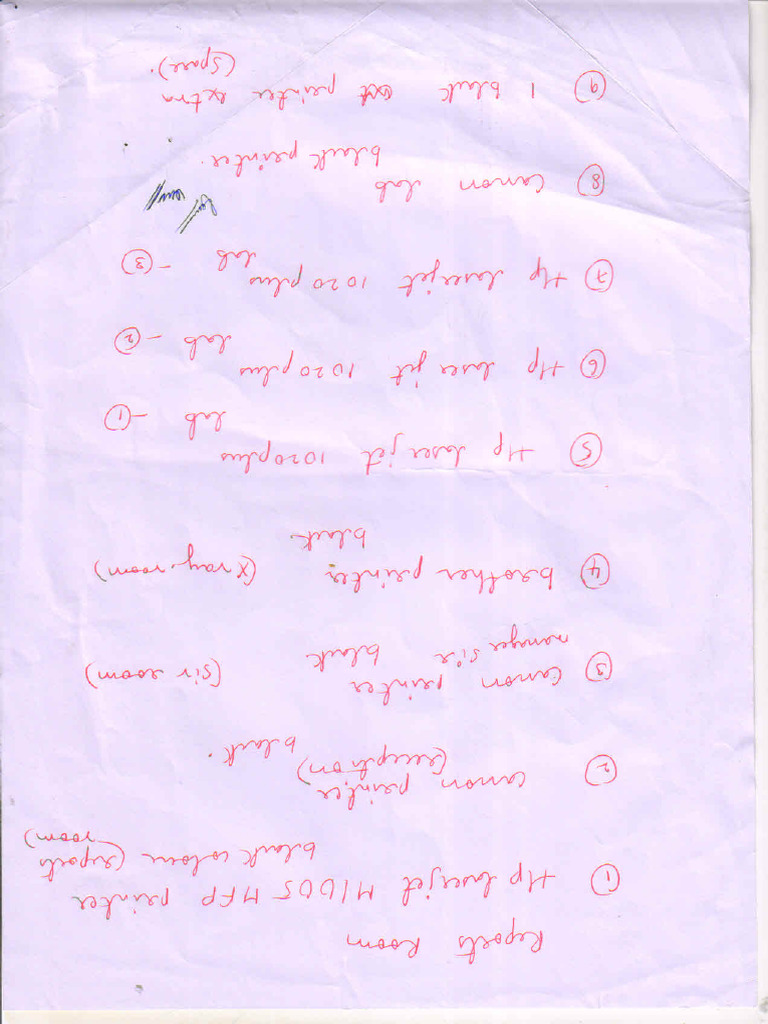 Reports Room
① Hp laserjet M1005 MFP printer
black colour (reports room)
② canon printer
(reception) black.
③ canon printer (Sir room)
manager sir black
④ brother printer (X ray. room)
black
⑤ Hp laser jet 1020 plus
lab - ①
⑥ Hp laser jet 1020 plus
lab - ②
⑦ Hp laserjet 1020 plus
lab - ③
⑧ canon lab
black printer.
⑨ 1 black printer extra
(Spare).